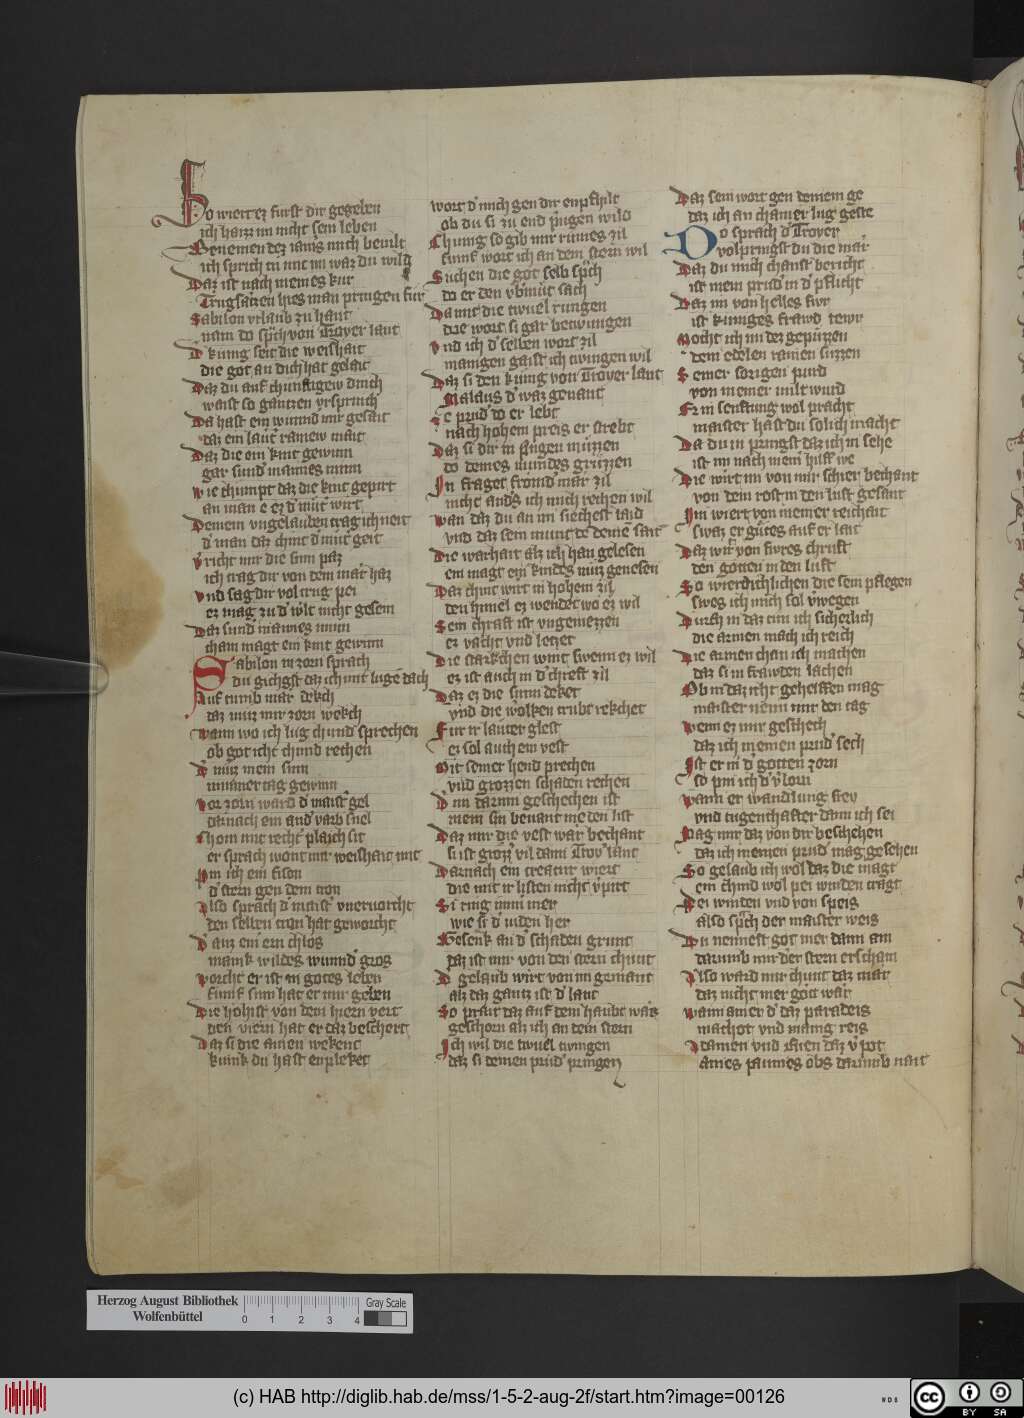 So wiert ez furst dir gegeben
ich haizz im nicht sein leben
Benemen dez iamis mich bevilt
ich sprich in nu im waz du wild
Daz ist nach meines kur
Trugsatzen hies man pringen fur
Sabilon vrlaub zu hant
nam do sprch von Troyer lant
D kunig seit die weishait
die got an dich hat gelait
Daz du auf chunftigew dinch
waist so gantzen vrsprinch
Da hast ein wunnd mir gesait
daz ein laut rainew mait
Daz die ein kint gewinn
gar sund mannes minn
wie chumpt daz die kint gepirt
an man e ez d mut wirt
Deinem vngelauben trag ich neit
d man daz chint d mut geit
Vricht mir die sinn paz
ich trag dir von dem mar haz
vnd sag dir vol trug pei
ez mag zu d welt nicht gesein
Daz sund mannes minn
chain magt ein kint gewinn
Sabilon in zorn sprach
du gichgst daz ich mit luge dach
Auf tumb mar dekch
daz muz mir zorn wekch
wann wo ich lug chund sprechen
ob got icht chund rechen
D muz mein sinn
nimmer tag gewinn
vor zorn ward d maist gel
darnach ein and varb snel
Chom mit recht plaich sit
er sprach wont mir weishait mit
Pin ich ein fison
d stern gen dem tron
Also sprach d maist vneruorcht
den selben tron hat geworcht
D ainz ein ern chlos
manik wildes wunnd gros
vorcht er ist in gotes leben
funf sinn hat er mir geben
Die hohist von dem hiern vert
den viern hat er daz beschert
Daz si die ainen wekent
kunik du hast enpleket
wort d mich gen dir enpfhilt
ob du si zu end pringen wild
Chunig so gib mir rumes zil
funf wort ich an dem stern wil
Suchen die got selb sprch
do er den vbmut sach
Damit die twuel rungen
die wort si gar betwungen
vnd ich d selben wort zil
manigen gaist ich twingen wil
Daz si den kunig von Troyer lant
Malaus d waz genant
Je prud do er lebt
nach hohem preis er strebt
Daz si dir in flugen muzzen
do deines mundes gruzzen
In fraget fromd mar zil
nicht ands ich mich rechen wil
wan daz du an im siechest laid
vnd daz sein munt de deine sait
Die warhait alz ich han gelesen
ein magt ein kindes muz genesen
Daz chint wirt in hohem zil
den himel ez wendet wo ez wil
Sein chraft ist vngemezzen
ez vacht vnd letzet
Die starkchen wint swenn ez wil
ez ist auch in d chreft zil
Daz ez die sunn deket
vnd die wolken trubt rekchet
Fur ir lauter glest
ez sol auch ein vest
Mit seiner hend prechen
vnd grozzen schaden rechen
D im darinn geschechen ist
mein sin benant me den list
Daz mir die vest war bechant
si ist grozz vil dann Troy lant
Darnach ein creatur wiert
die mit ir listen nicht vpirt
Si ring imm mer
wie si d iuden her
Gesenk an d schaden grunt
daz ist mir von den stern chunt
D gelaub wirt von im gemant
alz daz gantz ist d lant
So prait daz auf dem haubt waz
geschorn alz ich an dem stern
Ich wil die twuel twingen
daz si deinen prud pringen
Daz sein wort gen deinem ge
daz ich an chainer lug geste
Do sprach d Troyer
volpringst du die mar
Daz du mich chanst bericht
ist mein prud in d pflicht
Daz im von helles fiur
ist kuniges frawd tewr
Mocht ich im dez gepuzzen
dem edelen rainen suzzen
Seiner sorigen purd
von meiner milt wurd
Er in senftung wol pracht
maister hastdu solich macht
Da du in pringst daz ich in sehe
ist im nach mein hilff we
Die wirt im von mir schier bechant
von dem rost in den luft gesant
Im wiert von meiner reichait
swaz er gutes auf er lait
Daz wir von fiwres chruft
den goten in den luft
So wierdichlichen die sein pflegen
swes ich mich sol vwegen
Durch in daz tun ich sicherlich
die armen mach ich reich
Die armen chan ich machen
daz si in frawden lachen
Ob in daz icht gehelffen mag
maister nenn mir den tag
wenn ez mir geschech
daz ich meinen prud sech
Ist er in d gotten zorn
so pin ich d vlorn
wann er wandlung frey
vnd tugenthafter dann ich sei
Mag mir daz von dir beschehen
daz ich meinen prud mag gesehen
So gelaub ich wol daz die magt
ein chind wol pei winden tragt
Pei winden vnd von speis
also sprch der maister weis
Du nennest got mer dann ain
darumb mir der stern erschain
Also ward mir chunt daz mar
daz nicht mer got war
wann ainer d daz paradeis
machot vnd manig reis
Adamen vnd Euen daz vpot
aines paumes obs darumb nait
Herzog August Bibliothek
Wolfenbüttel
0 1 2 3 4
Gray Scale
(c) HAB http://diglib.hab.de/mss/1-5-2-aug-2f/start.htm?image=00126
cc BY SA